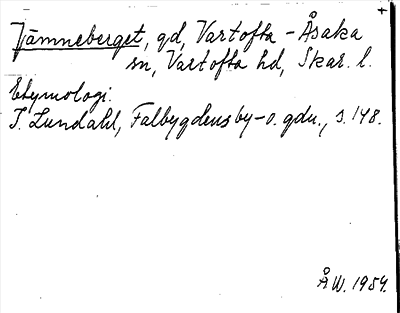 Jämneberget, gd, Vartofta - Åsaka
sn, Vartofta hd, Skar. l.
Etymologi.
I. Lundahl, Falbygdens by- o. gdn., s. 148.
Å W. 1954.